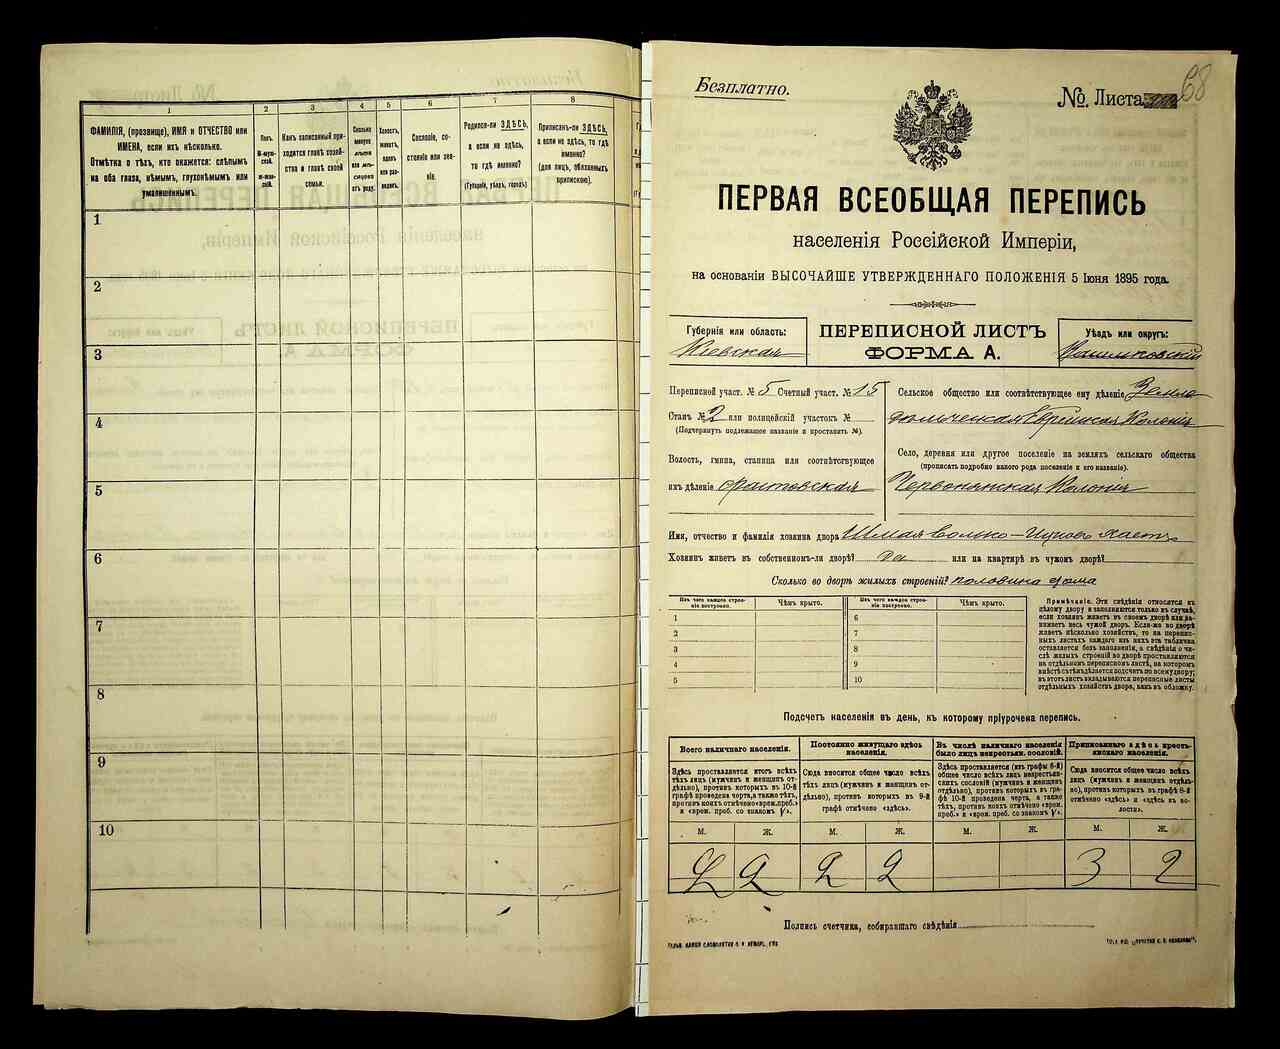 1
2
3
4
5
6
7
8
ФАМИЛІЯ, (прозвище), ИМЯ и ОТЧЕСТВО или
ИМЕНА, если ихъ нѣсколько.
Отмѣтка о тѣхъ, кто окажется: слѣпымъ
на оба глаза, нѣмымъ, глухонѣмымъ или
умалишеннымъ.
Полъ.
М-муж-
ской.
Ж-жен-
скій.
Какъ записанный при-
ходится главѣ хозяй-
ства и главѣ своей
семьи.
Сколько
минуло
лѣтъ
или мѣ-
сяцевъ
отъ роду.
Холостъ,
женатъ,
вдовъ
или раз-
веденъ.
Сословіе, со-
стояніе или зва-
ніе.
Родился-ли ЗДѢСЬ,
а если не здѣсь,
то гдѣ именно?
(Губернія, уѣздъ, городъ).
Приписанъ-ли ЗДѢСЬ,
а если не здѣсь, то гдѣ
именно?
(для лицъ, обязанныхъ
припискою).
1
2
3
4
5
6
7
8
9
10
Безплатно.
№. Листа 68
ПЕРВАЯ ВСЕОБЩАЯ ПЕРЕПИСЬ
населенія Россійской Имперіи,
на основаніи ВЫСОЧАЙШЕ УТВЕРЖДЕННАГО ПОЛОЖЕНІЯ 5 Іюня 1895 года.
Губернія или область:
Кіевская
ПЕРЕПИСНОЙ ЛИСТЪ
ФОРМА А.
Уѣздъ или округъ:
Переписной участ. № 5 Счетный участ. № 15
Станъ № 2 или полицейскій участокъ №
(Подчеркнуть подлежащее названіе и проставить №).
Волость, гмина, станица или соотвѣтствующее
ихъ дѣленіе Фастовская
Сельское общество или соотвѣтствующее ему дѣленіе Земле
дѣльческая Еврейская Колонія
Село, деревня или другое поселеніе на земляхъ сельскаго общества
(прописать подробно какого рода поселеніе и его названіе).
Червонянская Колонія
Имя, отчество и фамилія хозяина двора Шмая Волько-Ицковъ
Хозяинъ живетъ въ собственномъ-ли дворѣ? да или на квартирѣ въ чужомъ дворѣ?
Сколько во дворѣ жилыхъ строеній? половина дома
Изъ чего каждое строе-
ніе построено.
Чѣмъ крыто.
Изъ чего каждое строе-
ніе построено.
Чѣмъ крыто.
1
2
3
4
5
6
7
8
9
10
Примѣчаніе. Эти свѣдѣнія относятся къ
цѣлому двору и заполняются только въ случаѣ,
если хозяинъ живетъ въ своемъ дворѣ или за-
нимаетъ весь чужой дворъ. Если-же во дворѣ
живетъ нѣсколько хозяйствъ, то на перепис-
ныхъ листахъ каждаго изъ нихъ эта табличка
оставляется безъ заполненія, а свѣдѣнія о чи-
слѣ жилыхъ строеній во дворѣ проставляются
на отдѣльномъ переписномъ листѣ, на которомъ
вмѣстѣ съ тѣмъ дѣлается подсчетъ по всему двору;
въ этотъ листъ вкладываются переписные листы
отдѣльныхъ хозяйствъ двора, какъ въ обложку.
Подсчетъ населенія въ день, къ которому пріурочена перепись.
Всего наличнаго населенія.
Постоянно живущаго здѣсь
населенія.
Въ числѣ наличнаго населенія
было лицъ некрестьян. сословій.
Приписаннаго здѣсь кресть-
янскаго населенія.
Здѣсь проставляется итогъ всѣхъ
тѣхъ лицъ (мужчинъ и женщинъ от-
дѣльно), противъ которыхъ въ 10-й
графѣ проведена черта, а также тѣхъ,
противъ коихъ отмѣчено «врем. преб.»
и «врем. преб. со знакомъ V».
Сюда вносится общее число всѣхъ
тѣхъ лицъ (мужчинъ и женщинъ от-
дѣльно), противъ которыхъ въ 9-й
графѣ отмѣчено «здѣсь».
Здѣсь проставляется (изъ графы 6-й)
общее число всѣхъ лицъ некрестьян-
скихъ сословій (мужчинъ и женщинъ
отдѣльно), противъ которыхъ въ гра-
фѣ 10-й проведена черта, а также
тѣхъ, противъ коихъ отмѣчено «врем.
преб.» и «врем. преб. со знакомъ V».
Сюда вносится общее число всѣхъ
лицъ (мужчинъ и женщинъ отдѣль-
но), противъ которыхъ въ графѣ 8-й
отмѣчено «здѣсь» и «здѣсь въ во-
лости».
М. Ж. М. Ж. М. Ж. М. Ж.
2 2 2 3 2
Подпись счетчика, собиравшаго свѣдѣнія